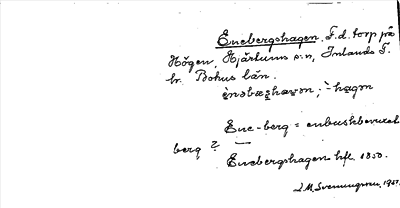 Enebergshagen, F.d. torp på
Högen, Hjärtums sn, Inlands T.
hr. Bohus län.
Ene-berg = enbuskbevuxet
berg ?
Enebergshagen hft. 1850.
S.M. Svenungsson, 1965